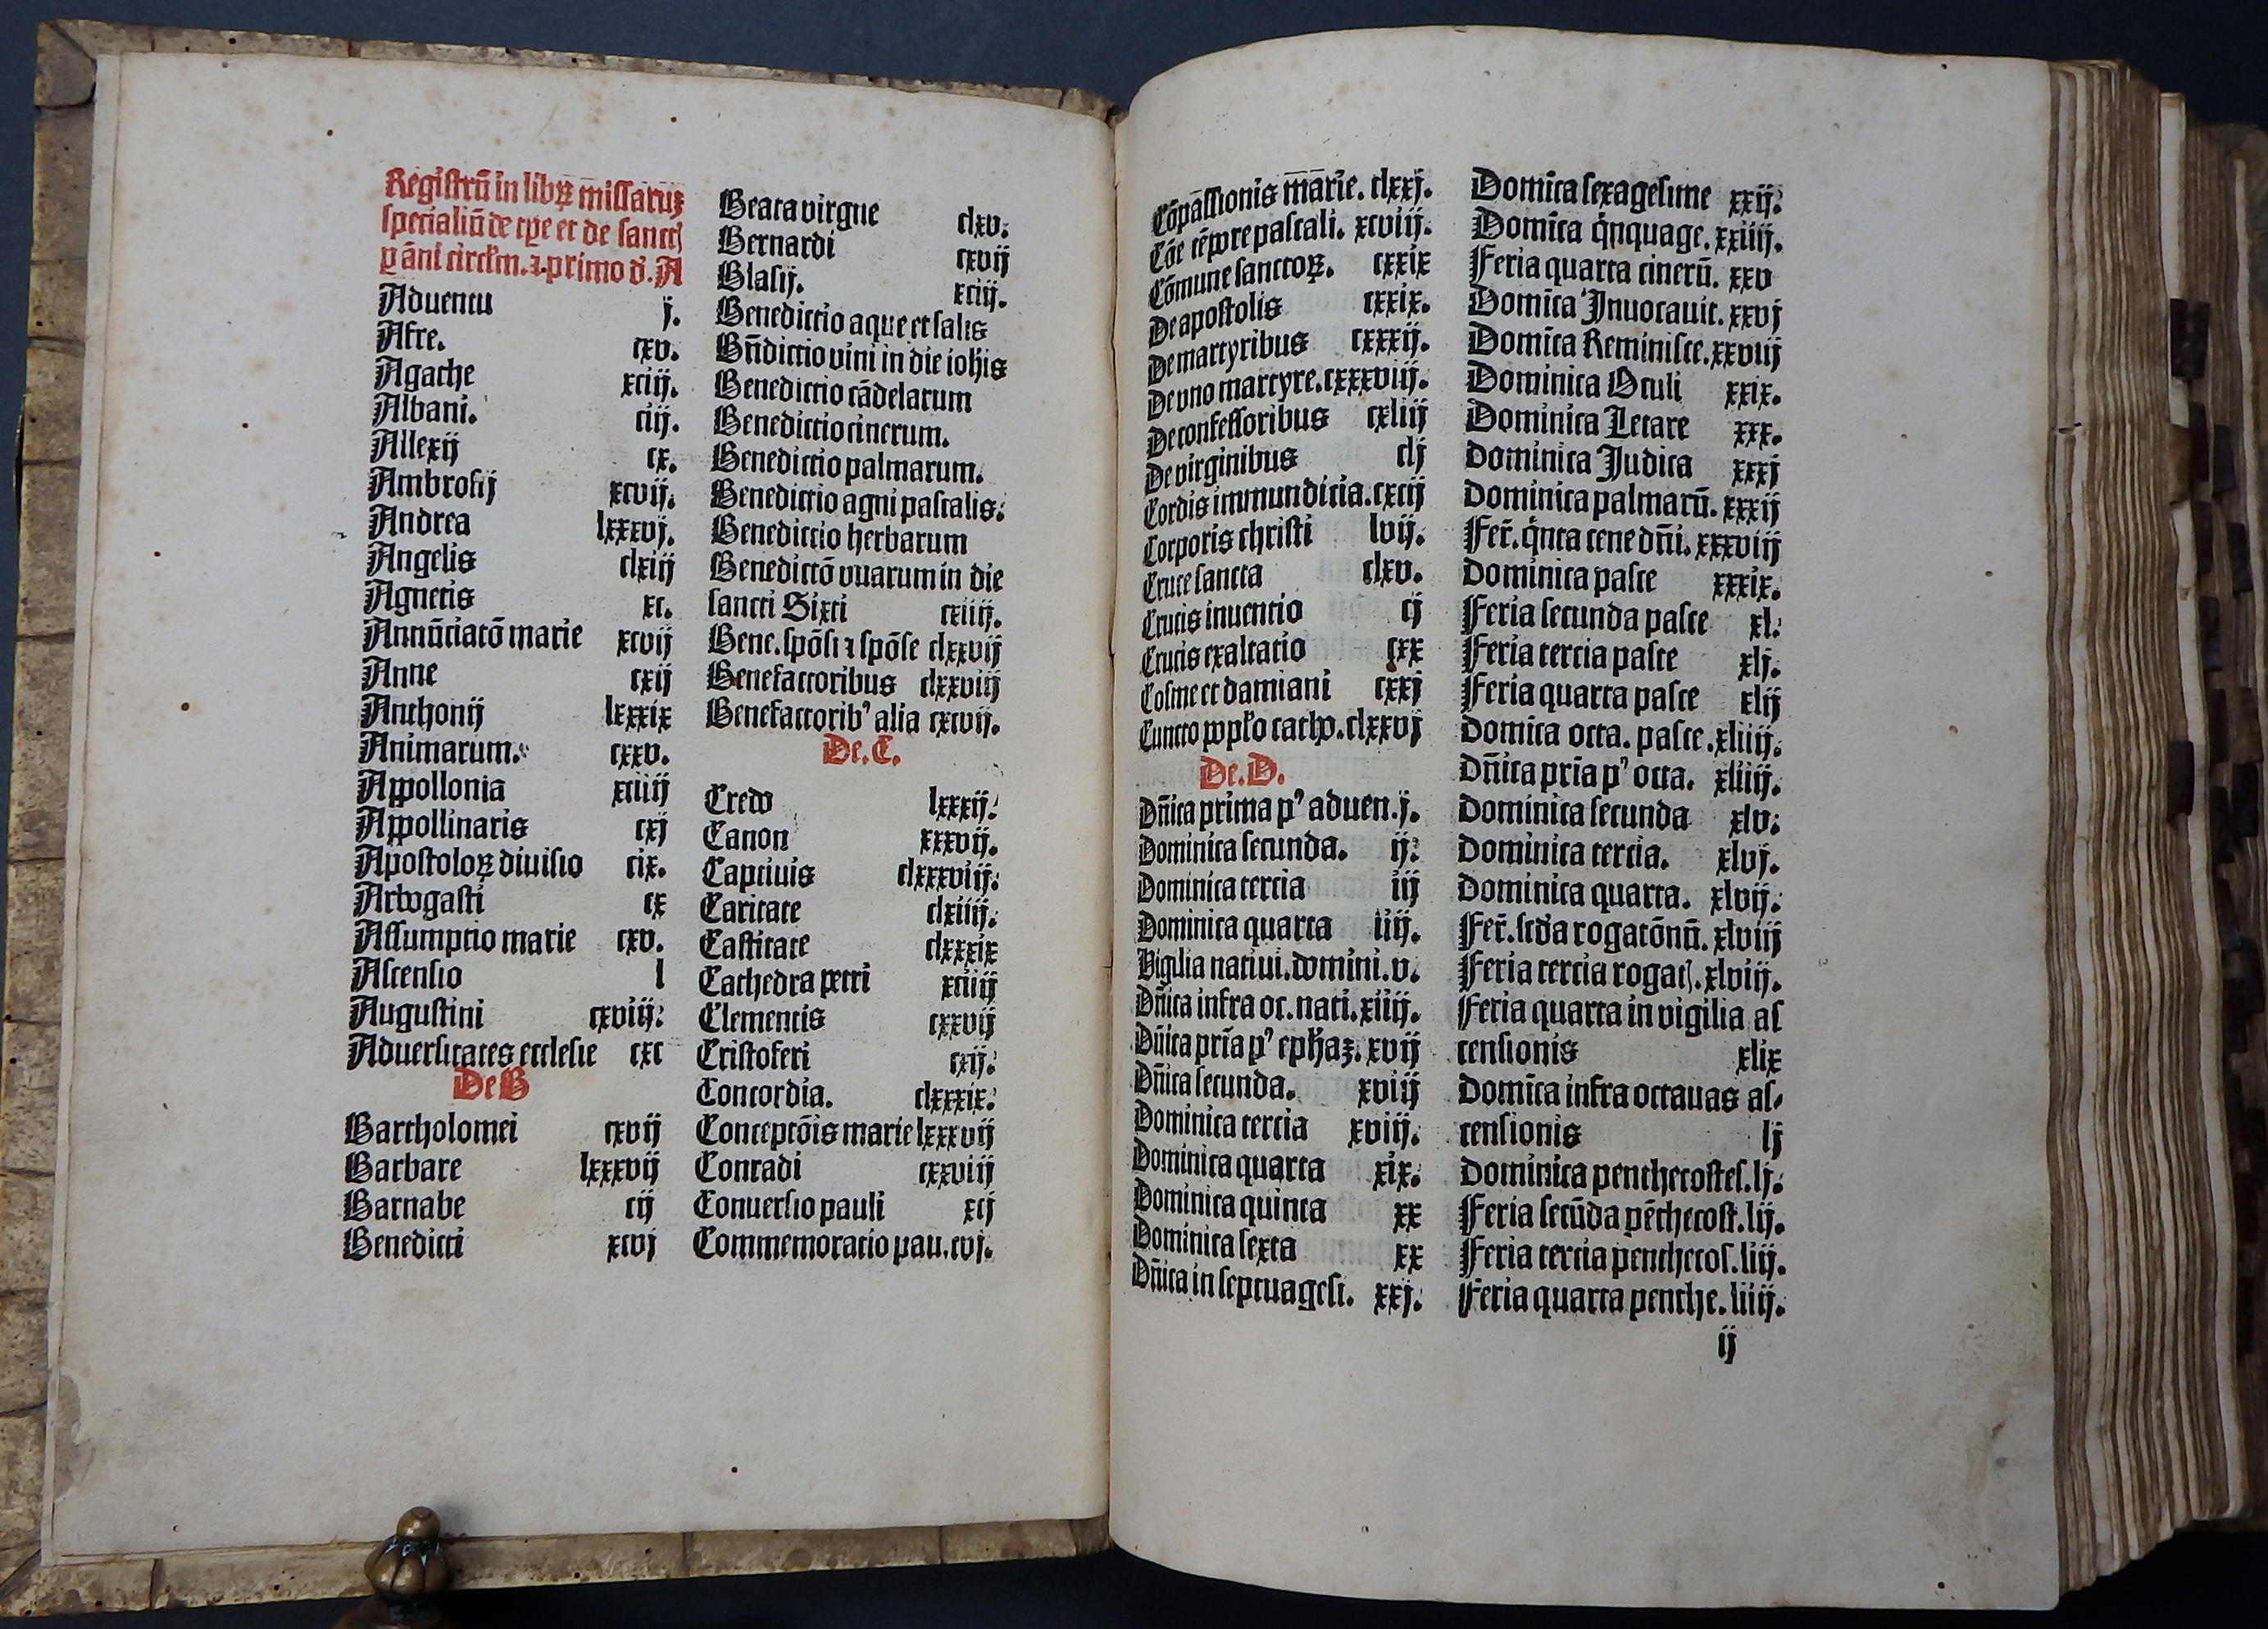 Registrū in libꝝ missaruꝫ
specialiū de tꝑe et de sanctꝭ
ꝑ āni circlm. ⁊ primo d̕. A
Aduentu j.
Afre. cxv.
Agathe xciij.
Albani. ciij.
Allexij cx.
Ambrosij xcvij.
Andrea lxxxvj.
Angelis clxiij
Agnetis xc.
Annūciatō marie xcvij
Anne cxij
Anthonij lxxxix
Animarum. cxxv.
Appollonia xciiij
Appollinaris cxj
Apostoloꝝ diuisio cix.
Arbogasti cx
Assumptio marie cxv.
Ascensio l
Augustini cxviij.
Aduersitates ecclesie cxc
De B
Bartholomei cxvij
Barbare lxxxvij
Barnabe cij
Benedicti xcvj
Beata virgine clxv.
Bernardi cxvij
Blasij. xciij.
Benedictio aque et salis
Bn̄dictio vini in die iohis
Benedictio cādelarum
Benedictio cinerum.
Benedictio palmarum.
Benedictio agni pascalis.
Benedictio herbarum
Benedictō vuarum in die
sancti Sixti cxiiij.
Bene. spōsi ⁊ spōse clxxvij
Benefactoribus clxxviij
Benefactorib᾽ alia cxcvij.
De. C.
Credo lxxxij.
Canon xxxvij.
Captiuis clxxxviij.
Caritate clxiiij.
Castitate clxxxix
Cathedra petri xciiij
Clementis cxxvij
Cristoferi cxij.
Concordia. clxxxix.
Conceptōis marie lxxxvij
Conradi cxxviij
Conuersio pauli xcj
Commemoratio pau. cvj.
Cōpassionis marie. clxxj.
Cōe tēpore pascali. xcviij.
Cōmune sanctoꝝ. cxxix
De apostolis cxxix.
De martyribus cxxxij.
De vno martyre. cxxxviij.
De confessoribus cxliij
De virginibus clj
Cordis immundicia. cxcij
Corporis christi lvij.
Cruce sancta clxv.
Crucis inuentio cj
Crucis exaltatio cxx
Cosme et damiani cxxj
Cuncto ppl̄o catho. clxxvj
De. D.
Dn̄ica prima p᾽ aduen. j.
Dominica secunda. ij.
Dominica tercia iij
Dominica quarta iiij.
Vigilia natiui. domini. v.
Dn̄ica infra oc. nati. xiiij.
Dn̄ica pria p᾽ ephaꝫ. xvij
Dn̄ica secunda. xviij
Dominica tercia xviij.
Dominica quarta xix.
Dominica quinta xx
Dominica sexta xx
Dn̄ica in septuagesi. xxj.
Domīca sexagesime xxij.
Domīca qn̄quage. xxiiij.
Feria quarta cinerū. xxv
Domīca Inuocauit. xxvj
Domīca Reminisce. xxviij
Dominica Oculi xxix.
Dominica Letare xxx.
Dominica Judica xxxj
Dominica palmarū. xxxij
Fer̄. qn̄ta cene dn̄i. xxxviij
Dominica pasce xxxix.
Feria secunda pasce xl.
Feria tercia pasce xlj.
Feria quarta pasce xlij
Domīca octa. pasce. xliiij.
Dn̄ica pria p᾽ octa. xliiij.
Dominica secunda xlv.
Dominica tercia. xlvj.
Dominica quarta. xlvij.
Fer̄. scd̄a rogatōnū. xlviij
Feria tercia rogatꝭ. xlviij.
Feria quarta in vigilia as
censionis xlix
Domīca infra octauas as⸗
censionis lj
Dominica penthecostes. lj.
Feria secūda pēthecost. lij.
Feria tercia penthecos. liij.
Feria quarta penthe. liiij.
ij